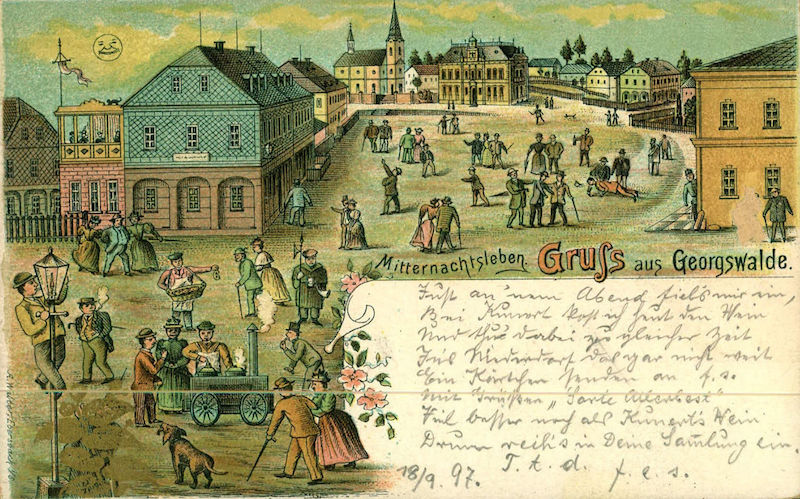 Mitternachtsleben. Gruss aus Georgswalde.
Just an 'nem Abend fiel's mir ein,
Bei Kunert kost ich heut den Wein
Und thu dabei zu gleicher Zeit
Niederdorf das gar nicht weit
Ein Kärtchen senden an f. s.
mit Grüßen
Viel besser noch als Kunert's Wein
Drum reih's in Deine Samlung ein.
18/9 97. T. t. d. f. e. s.